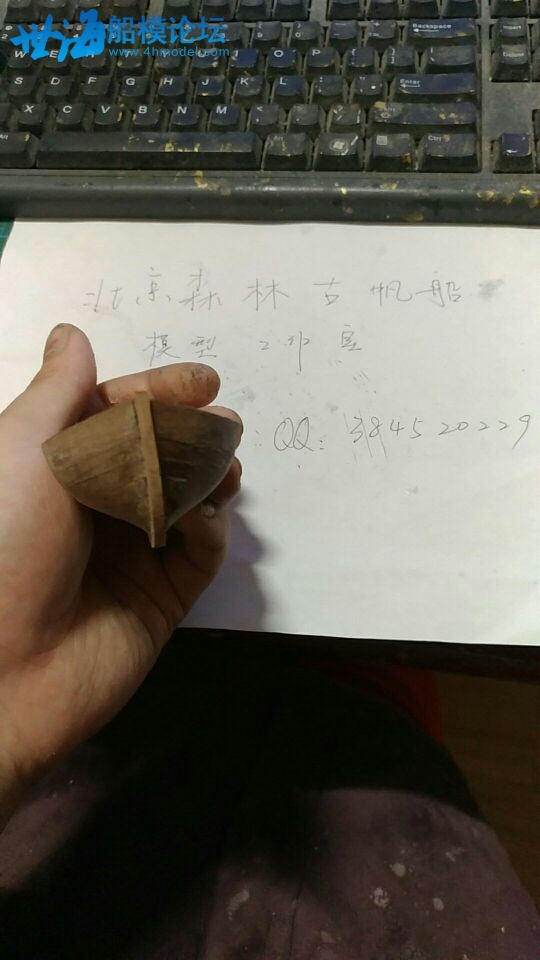 世海船模论坛
www.4hmodel.com
Backspace
Insert
W E R O P
Delete
S D F G H J K L
Enter
X C V B N M
Alt
Alt
Ctrl
北京森林古帆船
模型工作室
QQ: 384520229